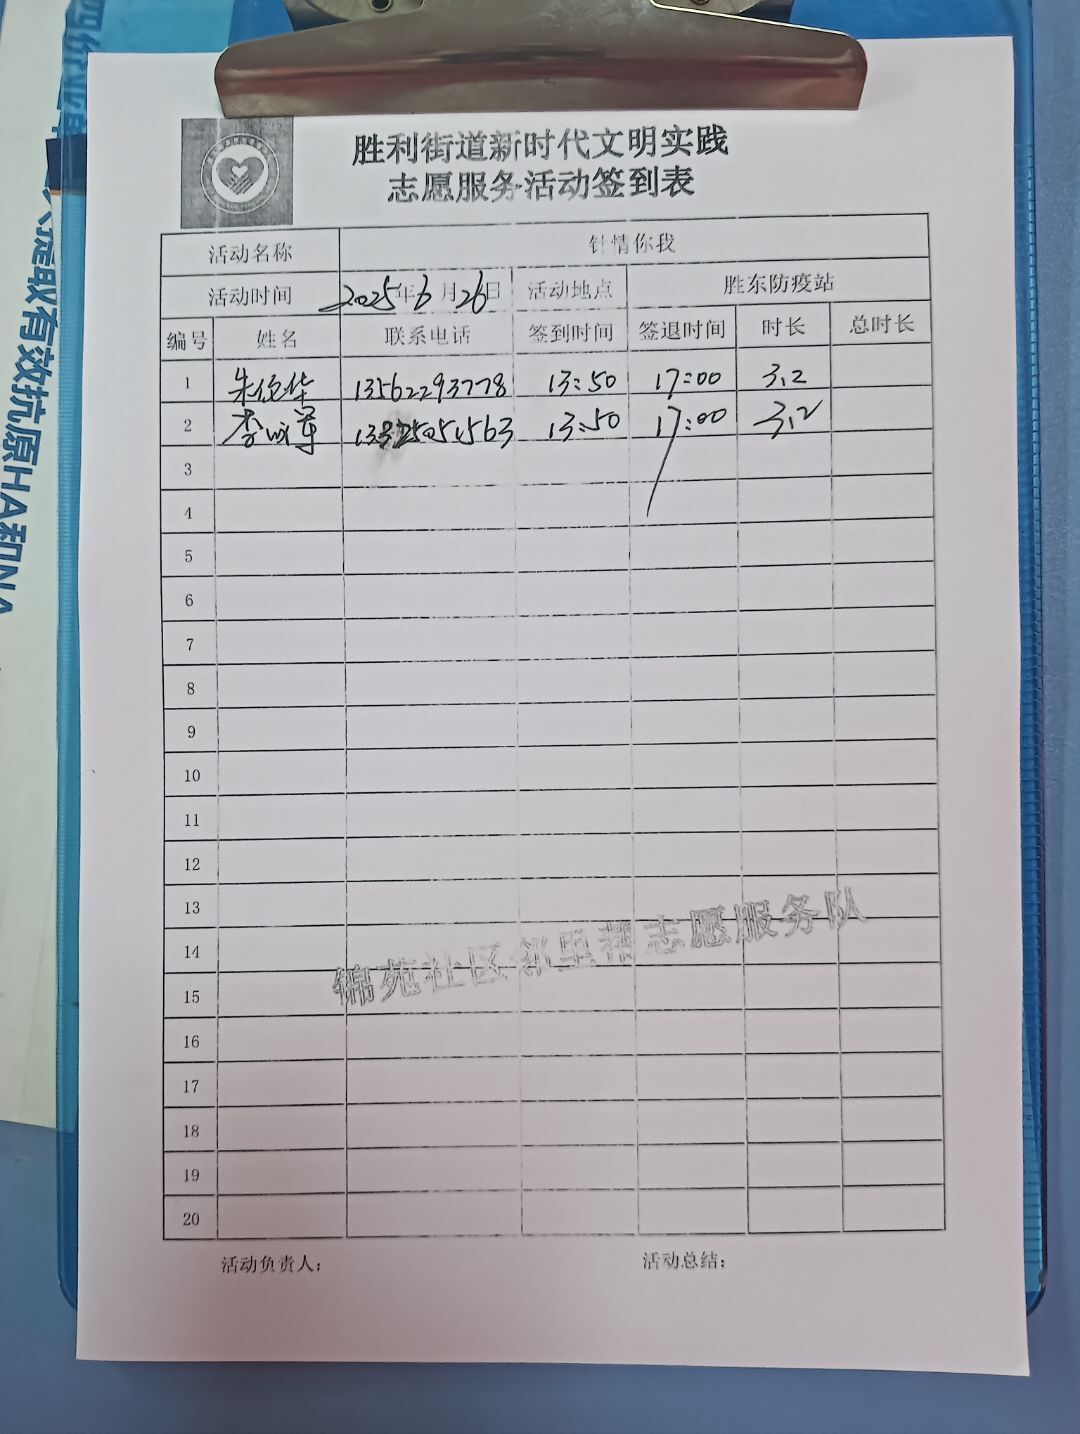 提取有效抗原HA和NA
胜利街道新时代文明实践
志愿服务活动签到表
活动名称 针情你我
活动时间 2025年6月26日 活动地点 胜东防疫站
编号 姓名 联系电话 签到时间 签退时间 时长 总时长
1 朱德华 13562293778 13:50 17:00 3.2
2 李 军 13:50 17:00 3.2
3
4
5
6
7
8
9
10
11
12
13
14
15
16
17
18
19
20
锦苑社区邻里帮志愿服务队
活动负责人: 活动总结: